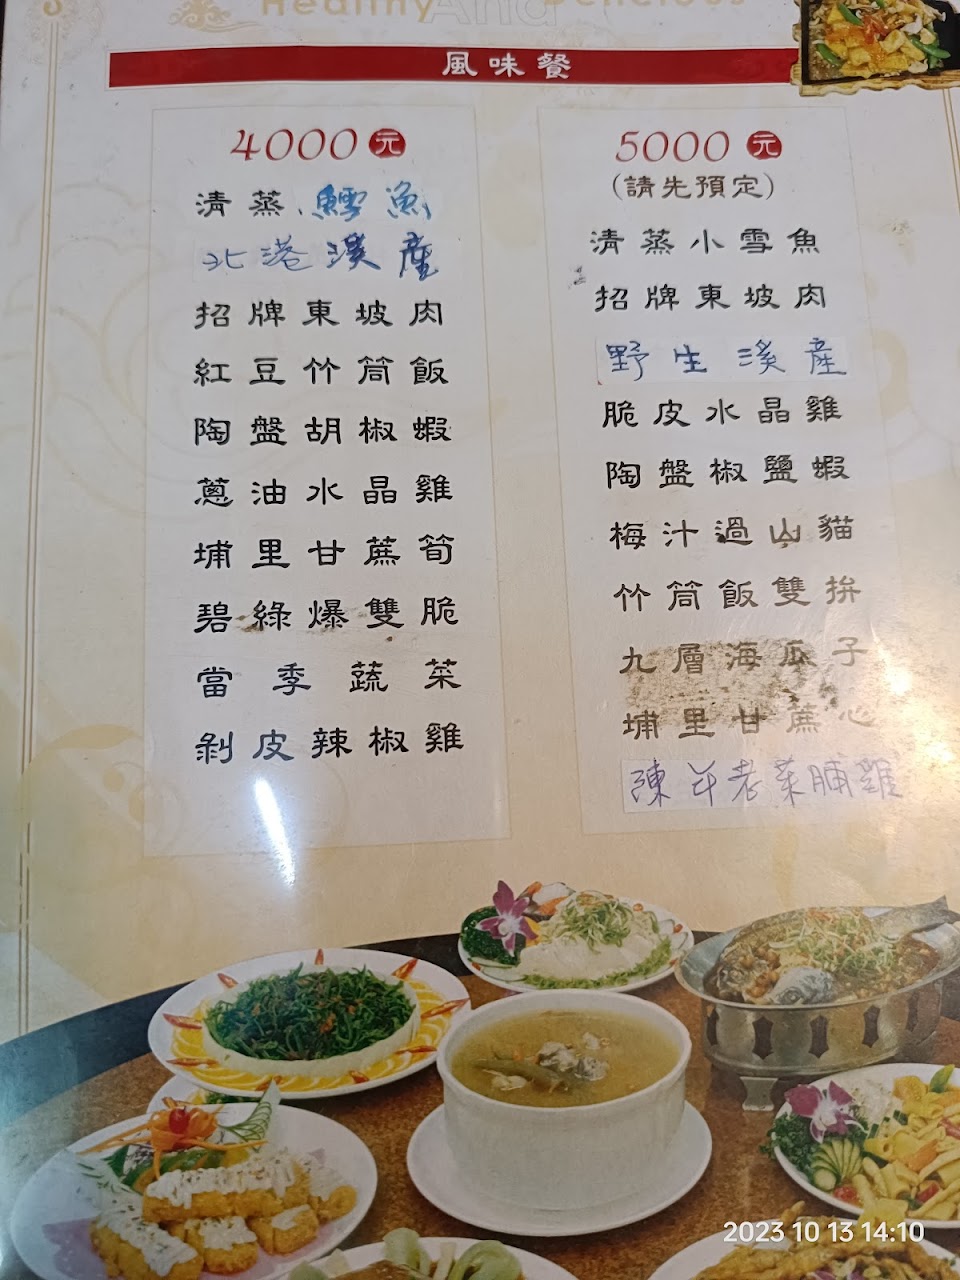 Healthy And Delicious
風味餐
4000元
清蒸鱈魚
北港溪產
招牌東坡肉
紅豆竹筒飯
陶盤胡椒蝦
蔥油水晶雞
埔里甘蔗筍
碧綠爆雙脆
當季蔬菜
剝皮辣椒雞
5000元
(請先預定)
清蒸小雪魚
招牌東坡肉
野生溪產
脆皮水晶雞
陶盤椒鹽蝦
梅汁過山貓
竹筒飯雙拚
九層海瓜子
埔里甘蔗心
陳年老菜脯雞
2023 10 13 14:10